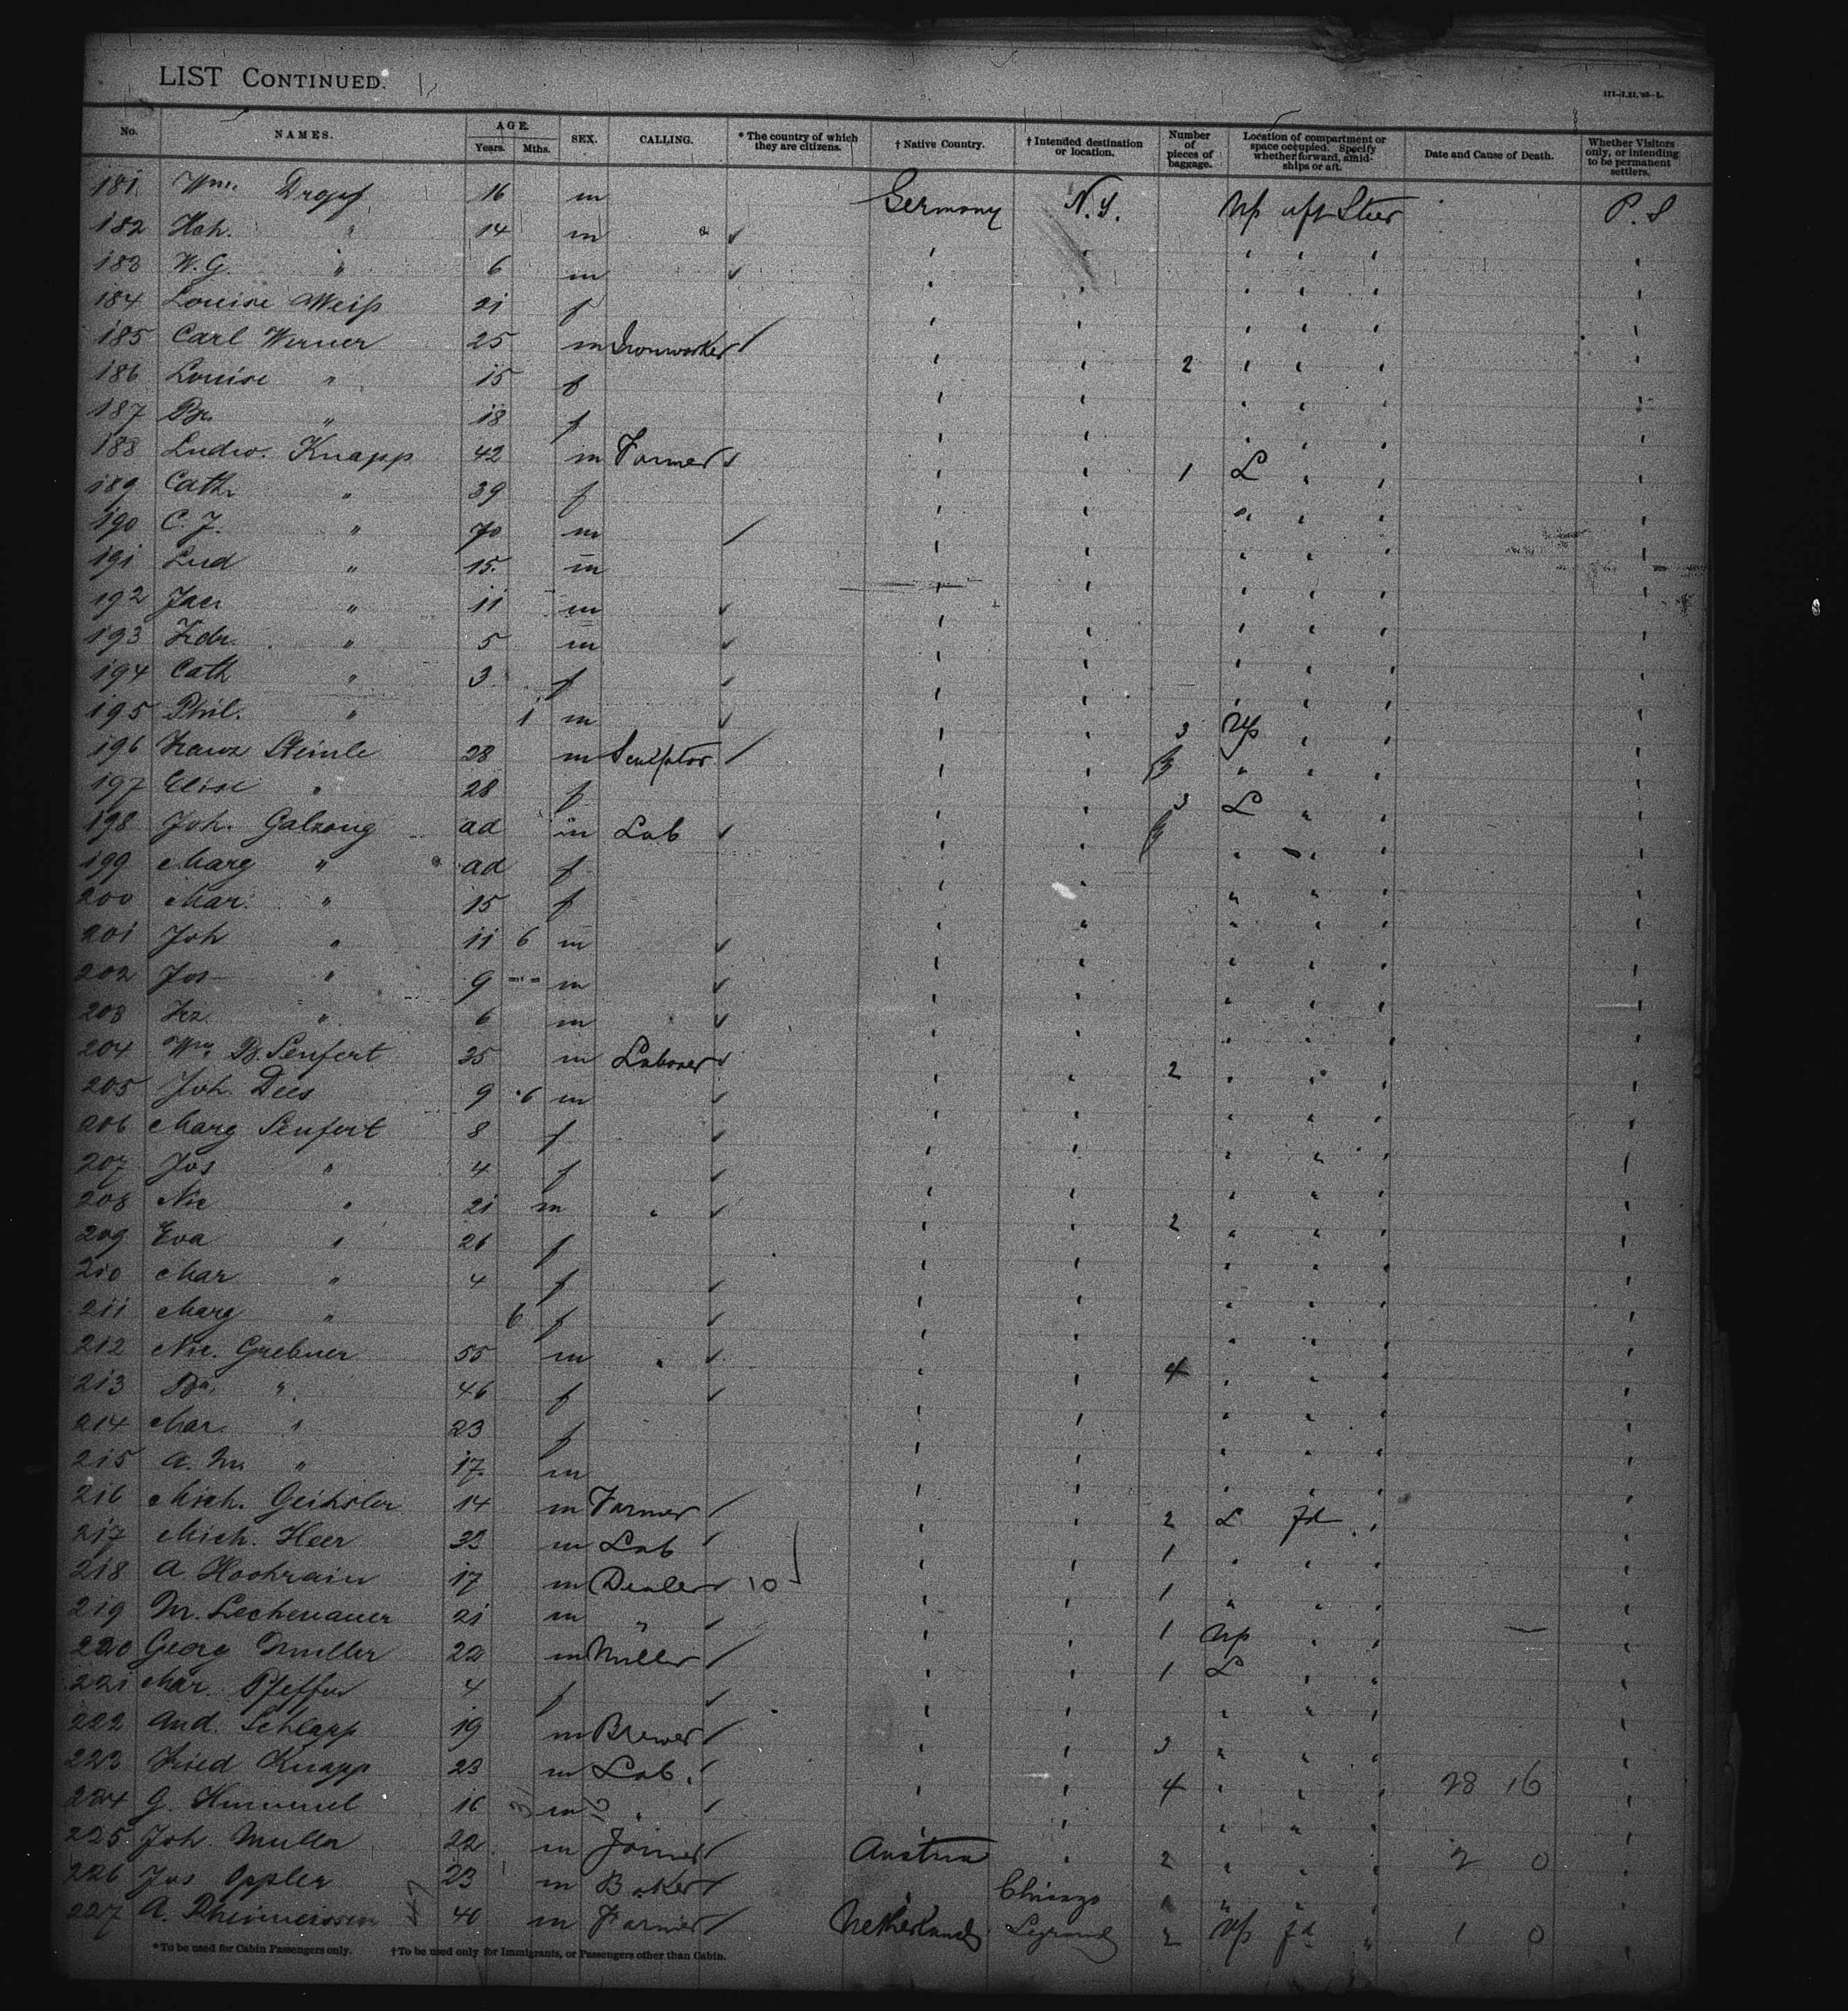 LIST CONTINUED.
No. NAMES. AGE. Years. Mths. SEX. CALLING. * The country of which they are citizens. † Native Country. † Intended destination or location. Number of pieces of baggage. Location of compartment or space occupied. Specify whether forward, amidships or aft. Date and Cause of Death. Whether Visitors only, or intending to be permanent settlers.
181 Wm. 16 m Germany N.Y. Up aft Steer P. S
182 " 14 m " ✓ ' ' ' ' ' '
183 W. G. " 6 m ✓ ' ' ' ' ' '
184 Louise Weiß 21 f ' ' ' ' ' '
185 Carl Werner 25 m Ironworker / ' ' 2 ' ' ' '
186 Louise " 15 f ' ' ' ' ' '
187 " 18 f ' ' ' ' ' '
188 Ludw. Knapp 42 m Farmer ✓ ' ' 1 L ' ' '
189 Cath. " 39 f ' ' " ' ' '
190 C. J. " 70 m / ' ' ' ' ' '
191 Lud " 15 m ' ' ' ' ' '
192 " 11 m ✓ ' ' ' ' ' '
193 " 5 m ✓ ' ' ' ' ' '
194 Cath " 3 f ✓ ' ' ' ' ' '
195 Phil. " 1 m ✓ ' ' ' ' '
196 Franz Steinle 28 m Sculptor / ' ' 3 Up ' ' '
197 Elise " 28 f ' ' " ' ' '
198 Joh. Galzong ad m Lab ✓ ' ' 3 L " ' '
199 Marg " ad f ' ' ' ' ' '
200 Mar. " 15 f ' ' " " ' '
201 Joh " 11 6 m ✓ ' ' ' ' ' '
202 Jos " 9 m ✓ ' ' ' ' ' '
203 Frz. " 6 m ✓ ' ' ' ' ' '
204 Wm B. Senfert 35 m Laborer ✓ ' ' 2 ' ' ' '
205 Joh. Dees 9 6 m ✓ ' ' ' ' ' '
206 Marg Senfert 8 f ✓ ' ' ' ' ' '
207 Jos " 4 f ✓ ' ' ' ' ' '
208 Nic " 21 m " ✓ ' ' 2 ' ' ' '
209 Eva " 26 f ' ' ' ' ' '
210 Mar " 4 f ✓ ' ' ' ' ' '
211 Marg " 6 f ✓ ' ' ' ' ' '
212 Nic. Grebner 55 m " ✓ ' ' 4 ' ' ' '
213 Ba. " 46 f ✓ ' ' ' ' ' '
214 Mar. " 23 f ' ' ' ' ' '
215 A. M. " 17 m ' ' ' ' ' '
216 Mich. 14 m Farmer / ' ' 2 L fd ' '
217 Mich. Heer 33 m Lab / ' ' 1 ' ' ' '
218 A Hochrain 17 m Dealer ✓ 10 ' ' 1 " ' ' '
219 M. Lechenauer 21 m " ✓ ' ' 1 Up ' ' '
220 Georg Muller 22 m Miller / ' ' 1 L ' ' '
221 Mar. Pfeffer 4 f ✓ ' ' ' ' ' '
222 And. Schlapp 19 m Brewer / ' ' 3 " " ' '
223 Fried Knapp 23 m Lab. / ' ' 4 ' ' ' 28 16 '
224 G. 16 m " / ' ' ' " ' '
225 Joh. Muller 22 m Joiner / Austria ' 2 ' ' ' 2 0 '
226 Jos Oppler 23 m Baker / ' Chicago " " ' ' '
227 A. 40 m Farmer / Netherlands Legrand 2 Up fd " 1 0 '
*To be used for Cabin Passengers only. †To be used only for Immigrants, or Passengers other than Cabin.